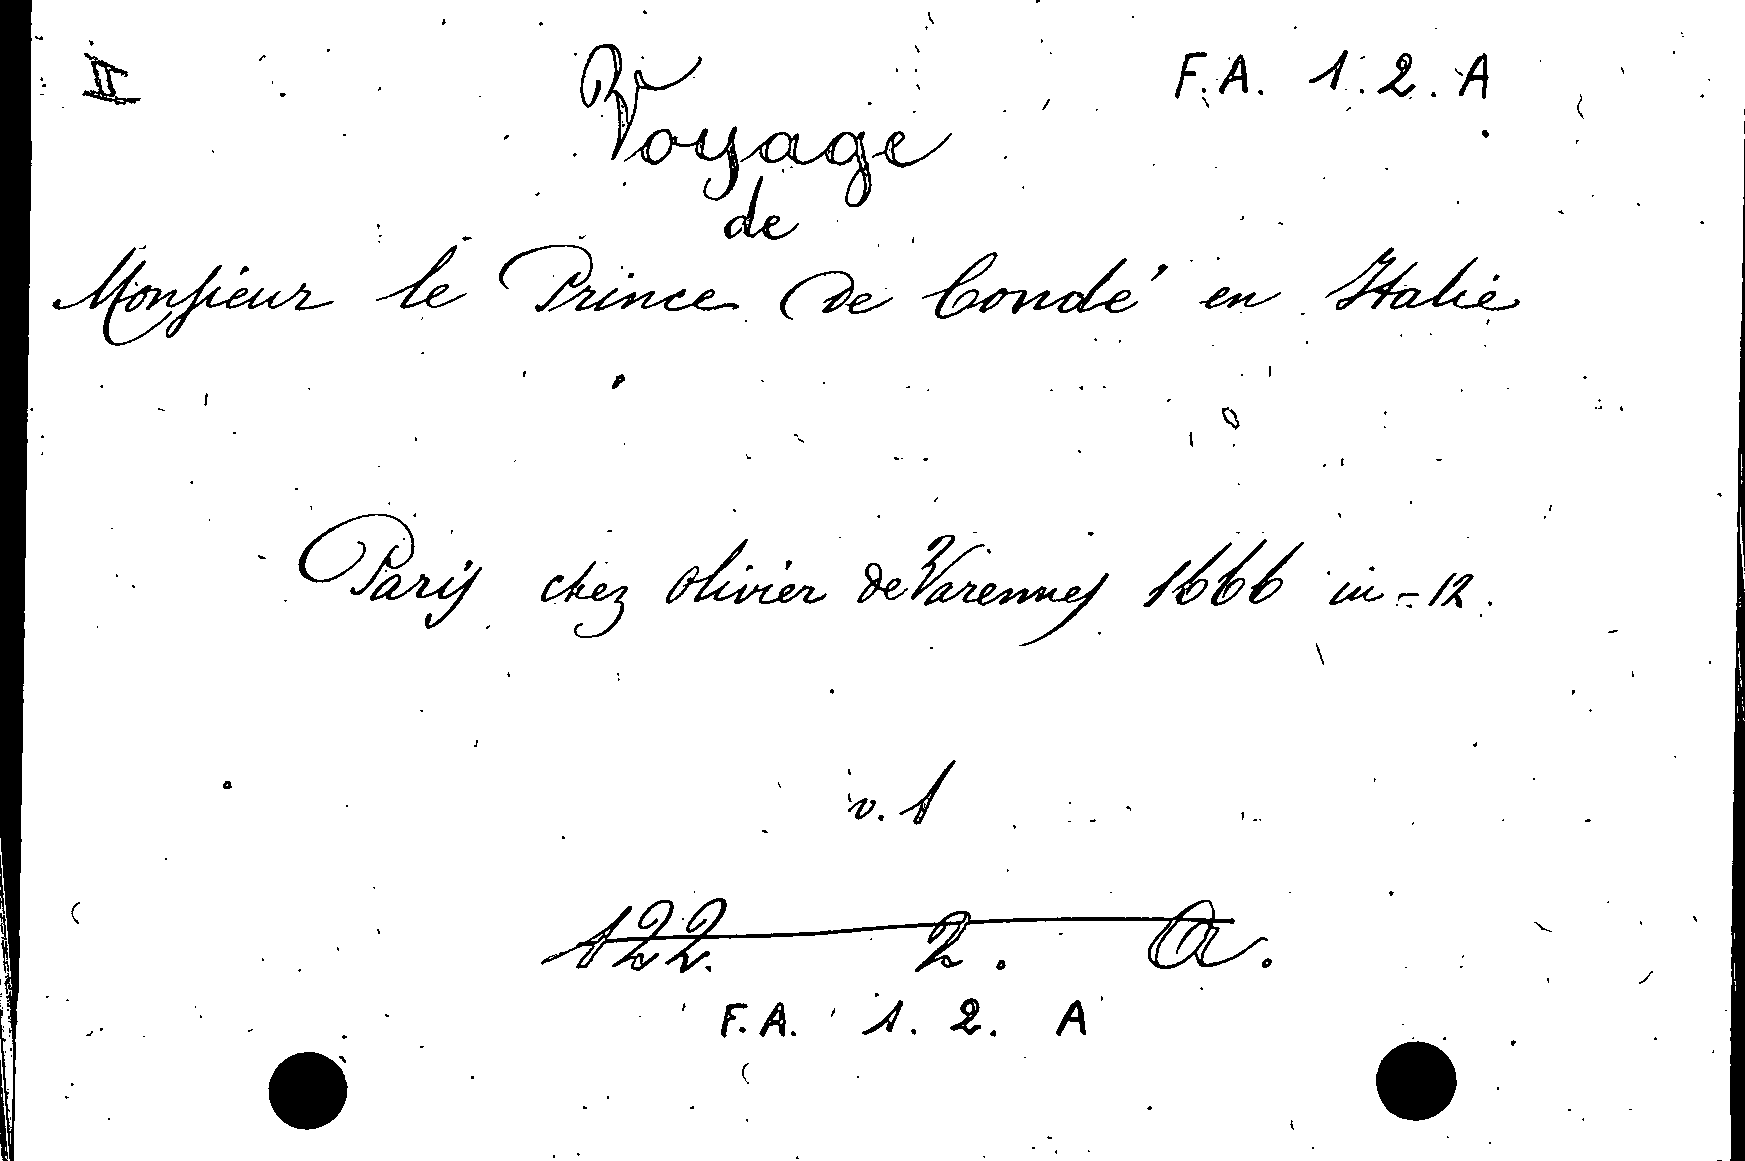 II
F.A. 1.2.A
Voyage
de
Monsieur le Prince de Condé en Italie
Paris chez Olivier de Varennes 1666 in-12.
v. 1
122. 2. A.
F.A. 1. 2. A